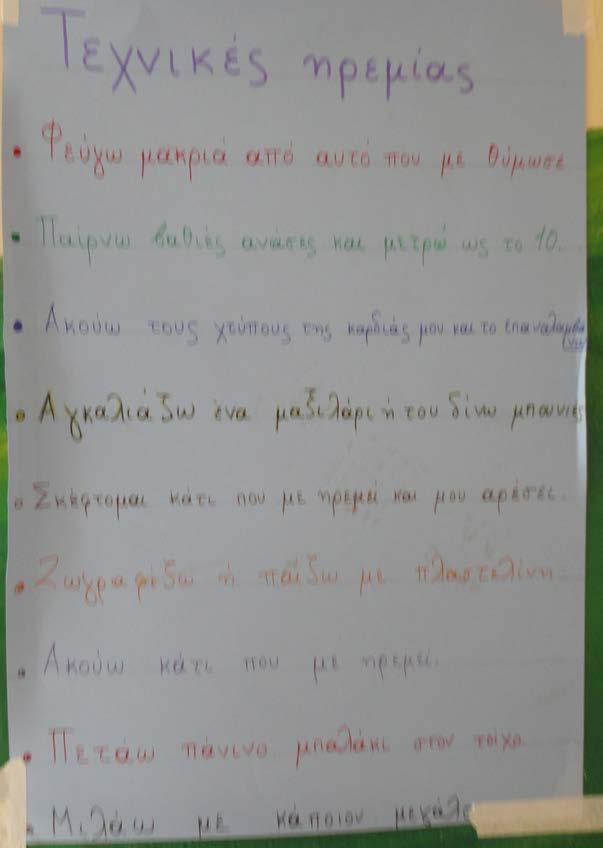 Τεχνικές ηρεμίας
• Φεύγω μακριά από αυτό που με θύμωσε
• Παίρνω βαθιές ανάσες και μετρώ ως το 10.
• Ακούω τους χτύπους της καρδιάς μου και το επαναλαμβά
νω
• Αγκαλιάζω ένα μαξιλάρι ή του δίνω μπουνιές
• Σκέφτομαι κάτι που με ηρεμεί και μου αρέσει.
• Ζωγραφίζω ή παίζω με πλαστελίνη
• Ακούω κάτι που με ηρεμεί.
• Πετάω πάνινο μπαλάκι στον τοίχο
• Μιλάω με κάποιον μεγάλο